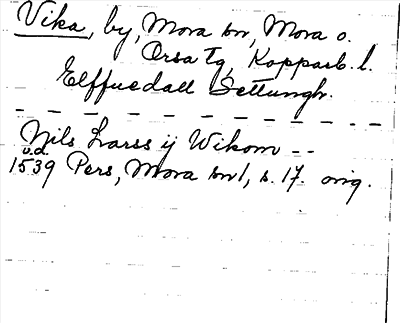 Vika, by, Mora sn, Mora o.
Orsa tg, Kopparb. l.
Elffuedall Settungh.
Nils Larss ij Wikom --
u.d.
1539 Pers, Mora sn 1, s. 17. orig.